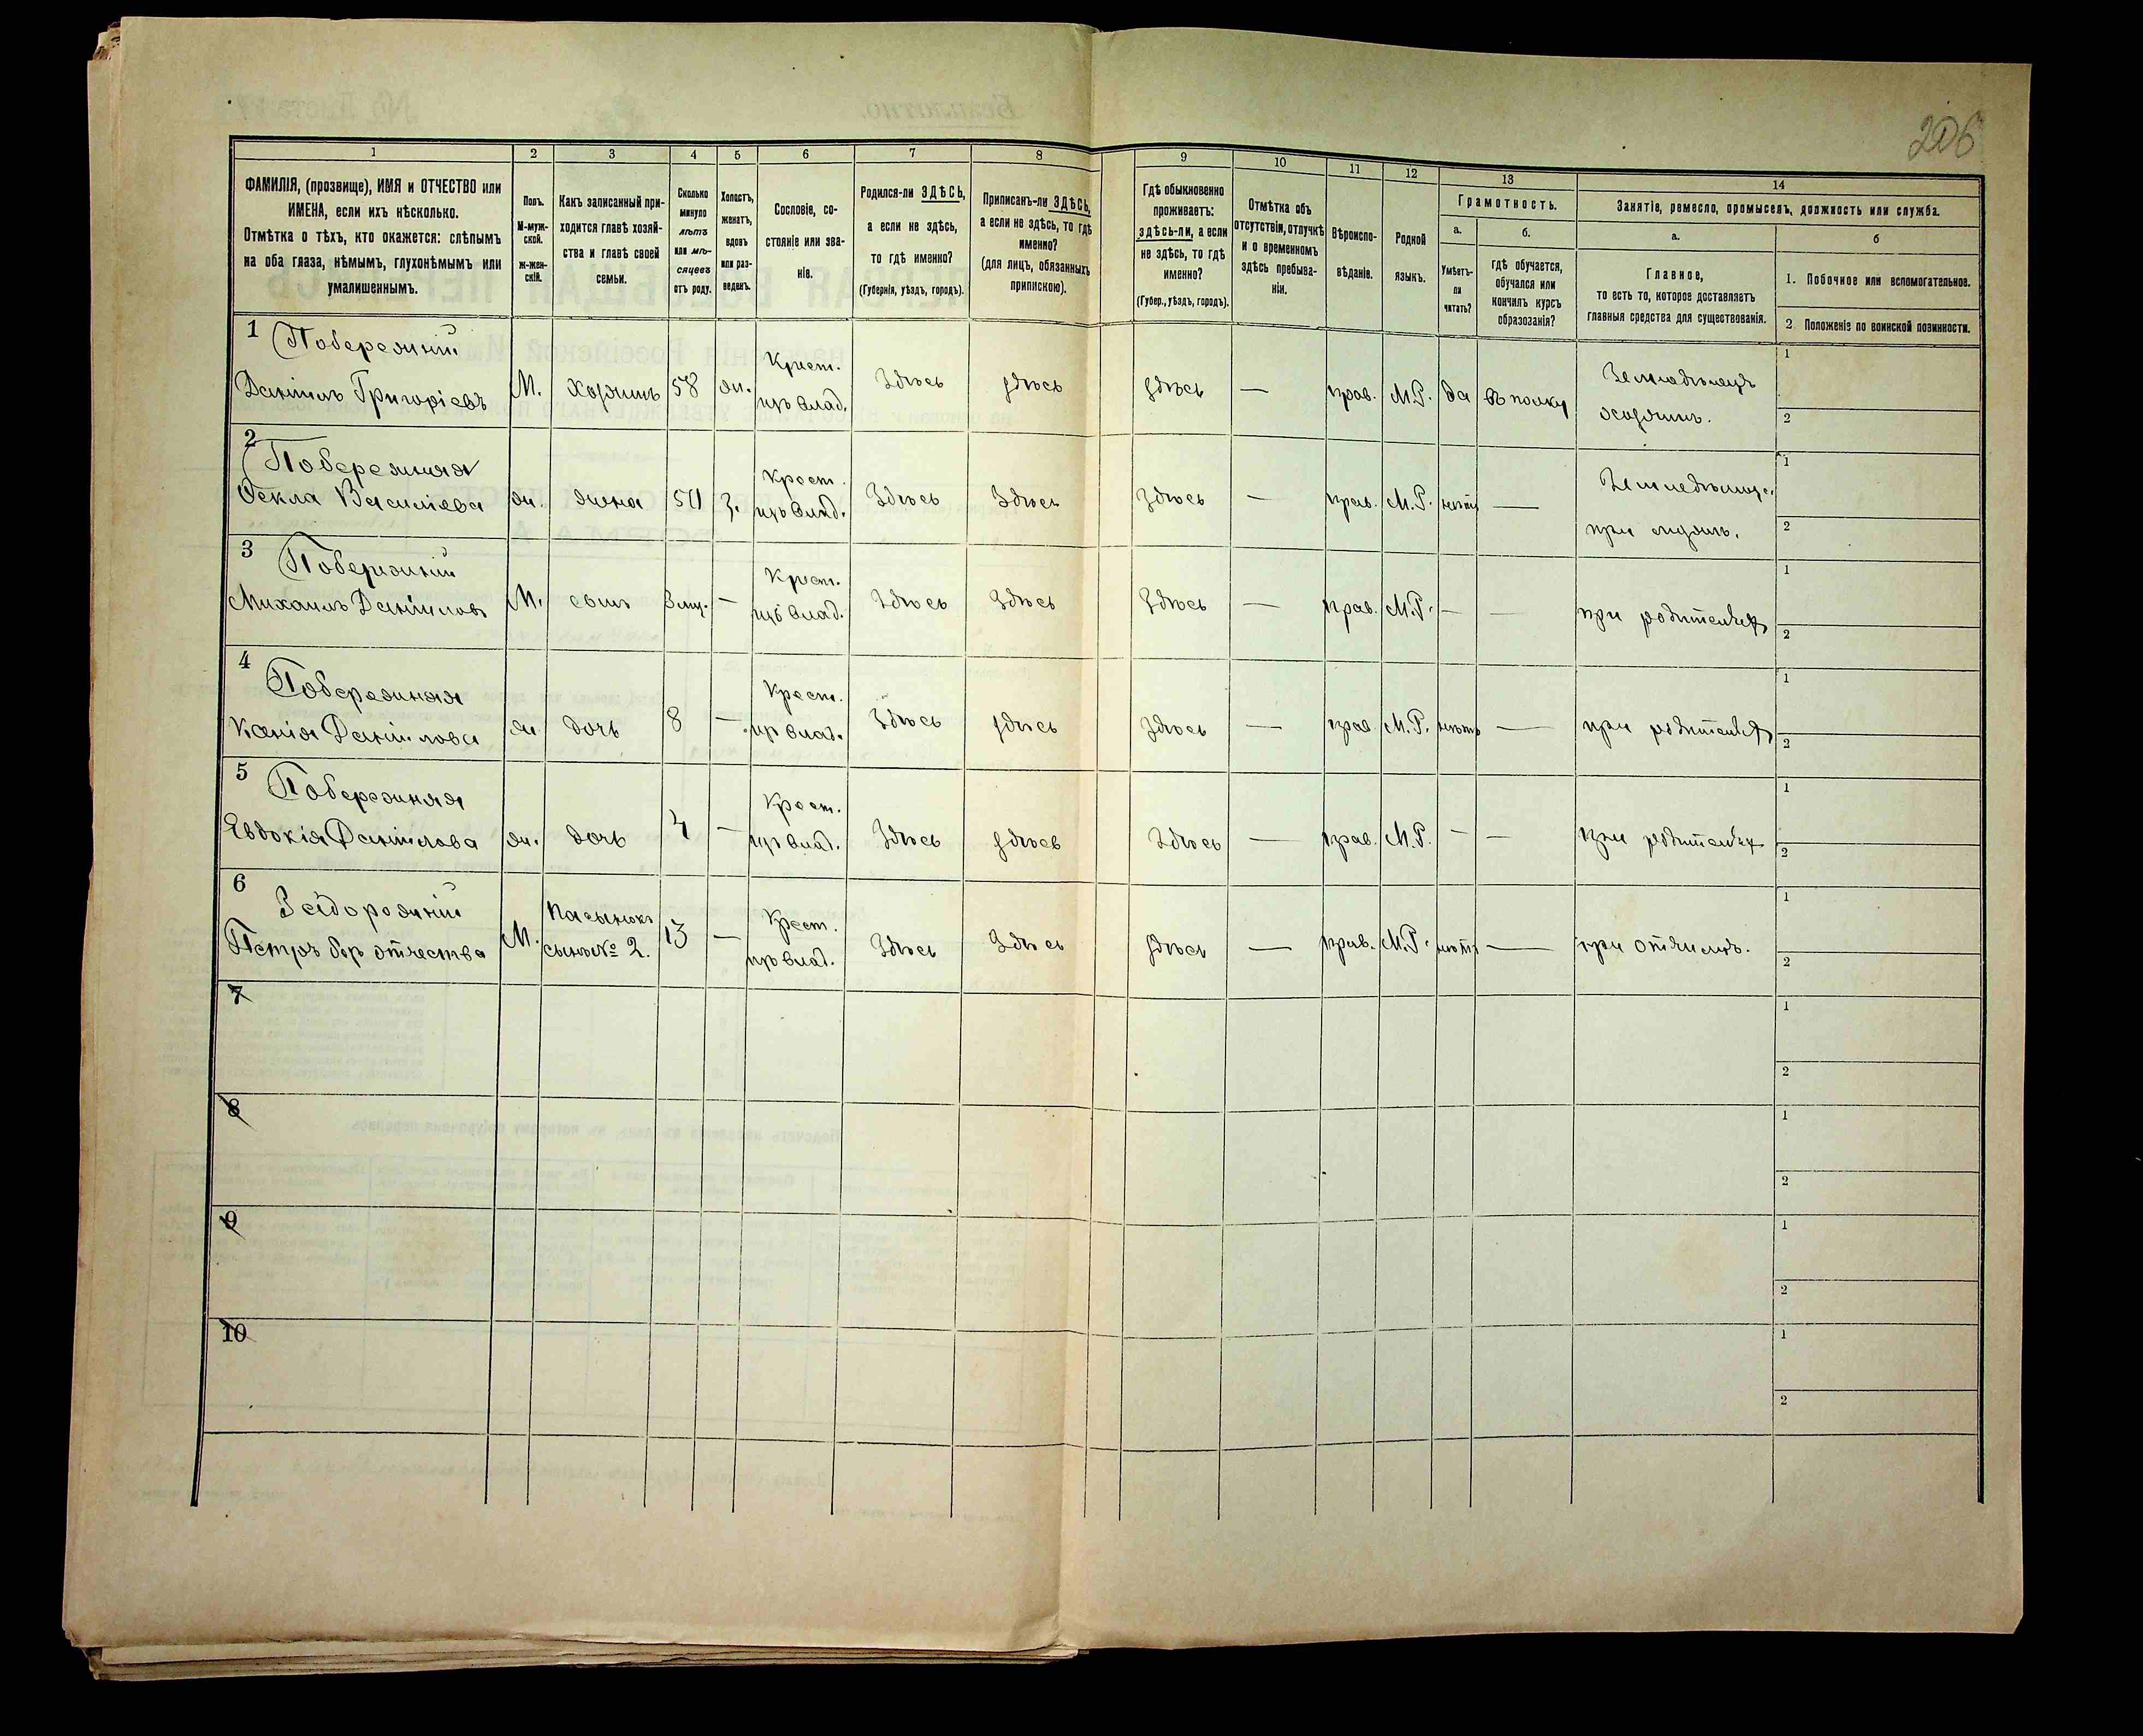 206
1
2
3
4
5
6
7
8
9
10
11
12
13
14
ФАМИЛІЯ, (прозвище), ИМЯ и ОТЧЕСТВО или
ИМЕНА, если ихъ нѣсколько.
Отмѣтка о тѣхъ, кто окажется: слѣпымъ
на оба глаза, нѣмымъ, глухонѣмымъ или
умалишеннымъ.
Полъ.
М-муж-
ской.
ж-жен-
скій.
Какъ записанный при-
ходится главѣ хозяй-
ства и главѣ своей
семьи.
Сколько
минуло
лѣтъ
или мѣ-
сяцевъ
отъ роду.
Холостъ,
женатъ,
вдовъ
или раз-
веденъ.
Сословіе, со-
стояніе или зва-
ніе.
Родился-ли ЗДѢСЬ,
а если не здѣсь,
то гдѣ именно?
(Губернія, уѣздъ, городъ).
Приписанъ-ли ЗДѢСЬ,
а если не здѣсь, то гдѣ
именно?
(для лицъ, обязанныхъ
припискою).
Гдѣ обыкновенно
проживаетъ:
здѣсь-ли, а если
не здѣсь, то гдѣ
именно?
(Губер., уѣздъ, городъ).
Отмѣтка объ
отсутствіи, отлучкѣ
и о временномъ
здѣсь пребыва-
ніи.
Вѣроиспо-
вѣданіе.
Родной
языкъ.
Грамотность.
а.
Умѣетъ-
ли
читать?
б.
гдѣ обучается,
обучался или
кончилъ курсъ
образованія?
Занятіе, ремесло, промыселъ, должность или служба.
а.
Главное,
то есть то, которое доставляетъ
главныя средства для существованія.
б
1. Побочное или вспомогательное.
2. Положеніе по воинской повинности.
1 Побережній
Даніилъ Григоріевъ М. Хозяинъ 58 ж. Крест.
изъ влад. Здѣсь здѣсь здѣсь — прав. М.Р. да въ полку Земледѣлецъ
хозяинъ. 1
2
2 Побережная
Ѳекла Васильева ж. жена 50 з. Крест.
изъ влад. Здѣсь Здѣсь Здѣсь — прав. М.Р. нѣтъ —
при мужѣ. 1
2
3 Побережній
Михаилъ Даніиловъ М. сынъ Крест.
изъ влад. Здѣсь Здѣсь Здѣсь — прав. М.Р. — — при родителяхъ 1
2
4 Побережная
Ксенія Даніилова ж. дочь 8 — Крест.
изъ влад. Здѣсь здѣсь здѣсь — прав. М.Р. нѣтъ — при родителяхъ 1
2
5 Побережная
Евдокія Даніилова ж. дочь 4 — Крест.
изъ влад. Здѣсь здѣсь Здѣсь — прав. М.Р. — — при родителяхъ 1
2
6 Задорожній
Петръ безъ отчества М. Пасынокъ
сынъ № 2. 13 — Крест.
изъ влад. Здѣсь Здѣсь здѣсь — прав. М.Р. нѣтъ — при отчимѣ. 1
2
7 1
2
8 1
2
9 1
2
10 1
2